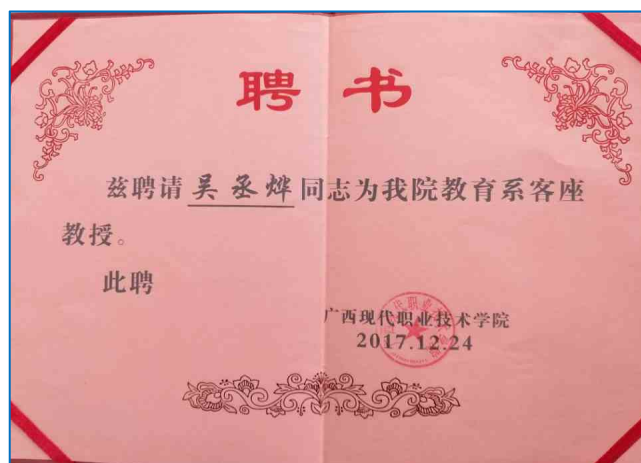 聘书
兹聘请吴丞烨同志为我院教育系客座
教授。
此聘
广西现代职业技术学院
2017.12.24